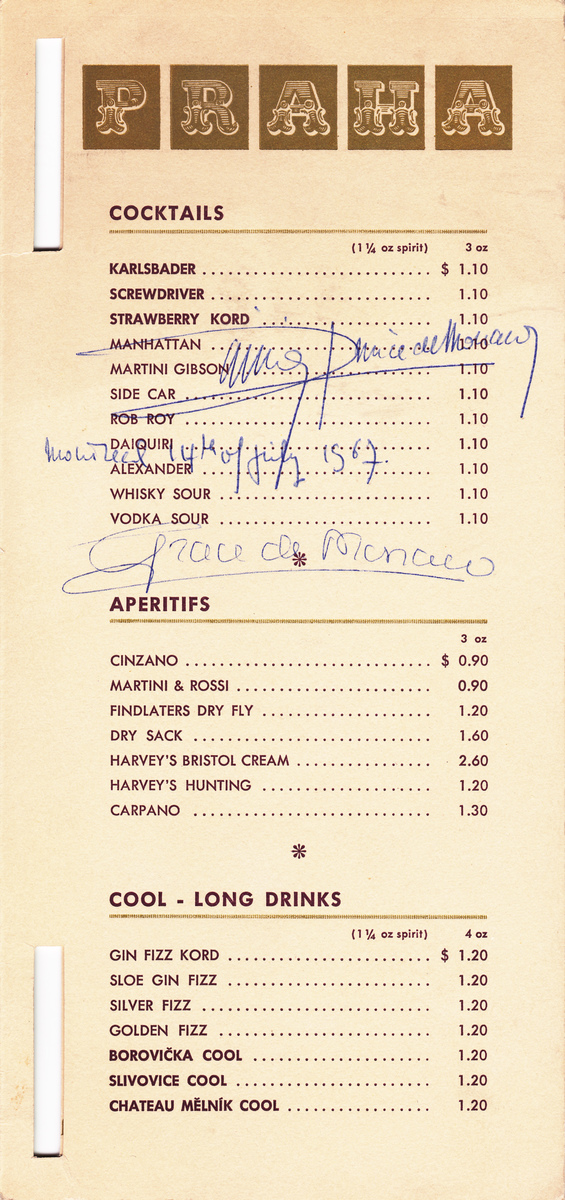 PRAHA
COCKTAILS
(1 ¼ oz spirit) 3 oz
KARLSBADER .......................... $ 1.10
SCREWDRIVER .......................... 1.10
STRAWBERRY KORD .......................... 1.10
MANHATTAN .......................... 1.10
Prince de Monaco
MARTINI GIBSON .......................... 1.10
SIDE CAR .......................... 1.10
ROB ROY .......................... 1.10
DAIQUIRI .......................... 1.10
Montreal 14th of July 1967.
ALEXANDER .......................... 1.10
WHISKY SOUR .......................... 1.10
VODKA SOUR .......................... 1.10
Grace de Monaco
APERITIFS
3 oz
CINZANO .......................... $ 0.90
MARTINI & ROSSI .......................... 0.90
FINDLATERS DRY FLY .......................... 1.20
DRY SACK .......................... 1.60
HARVEY'S BRISTOL CREAM .......................... 2.60
HARVEY'S HUNTING .......................... 1.20
CARPANO .......................... 1.30
COOL - LONG DRINKS
(1 ¼ oz spirit) 4 oz
GIN FIZZ KORD .......................... $ 1.20
SLOE GIN FIZZ .......................... 1.20
SILVER FIZZ .......................... 1.20
GOLDEN FIZZ .......................... 1.20
BOROVIČKA COOL .......................... 1.20
SLIVOVICE COOL .......................... 1.20
CHATEAU MĚLNÍK COOL .......................... 1.20